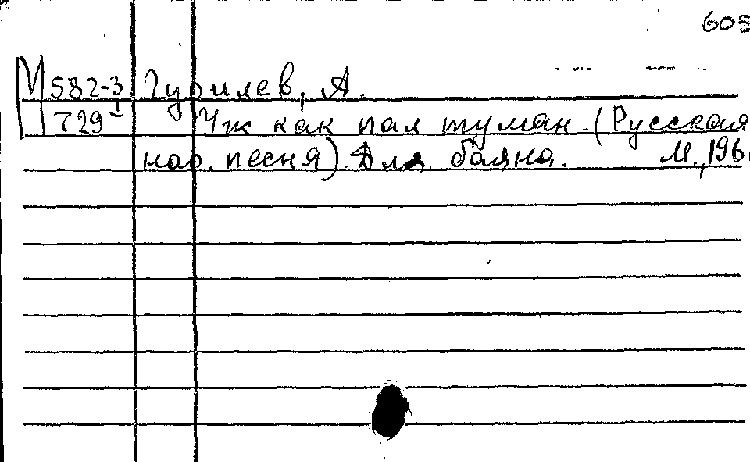 605
М 582-3 Гурилев, А.
729 Уж как пал туман. (Русская
нар. песня). Для баяна. М., 196